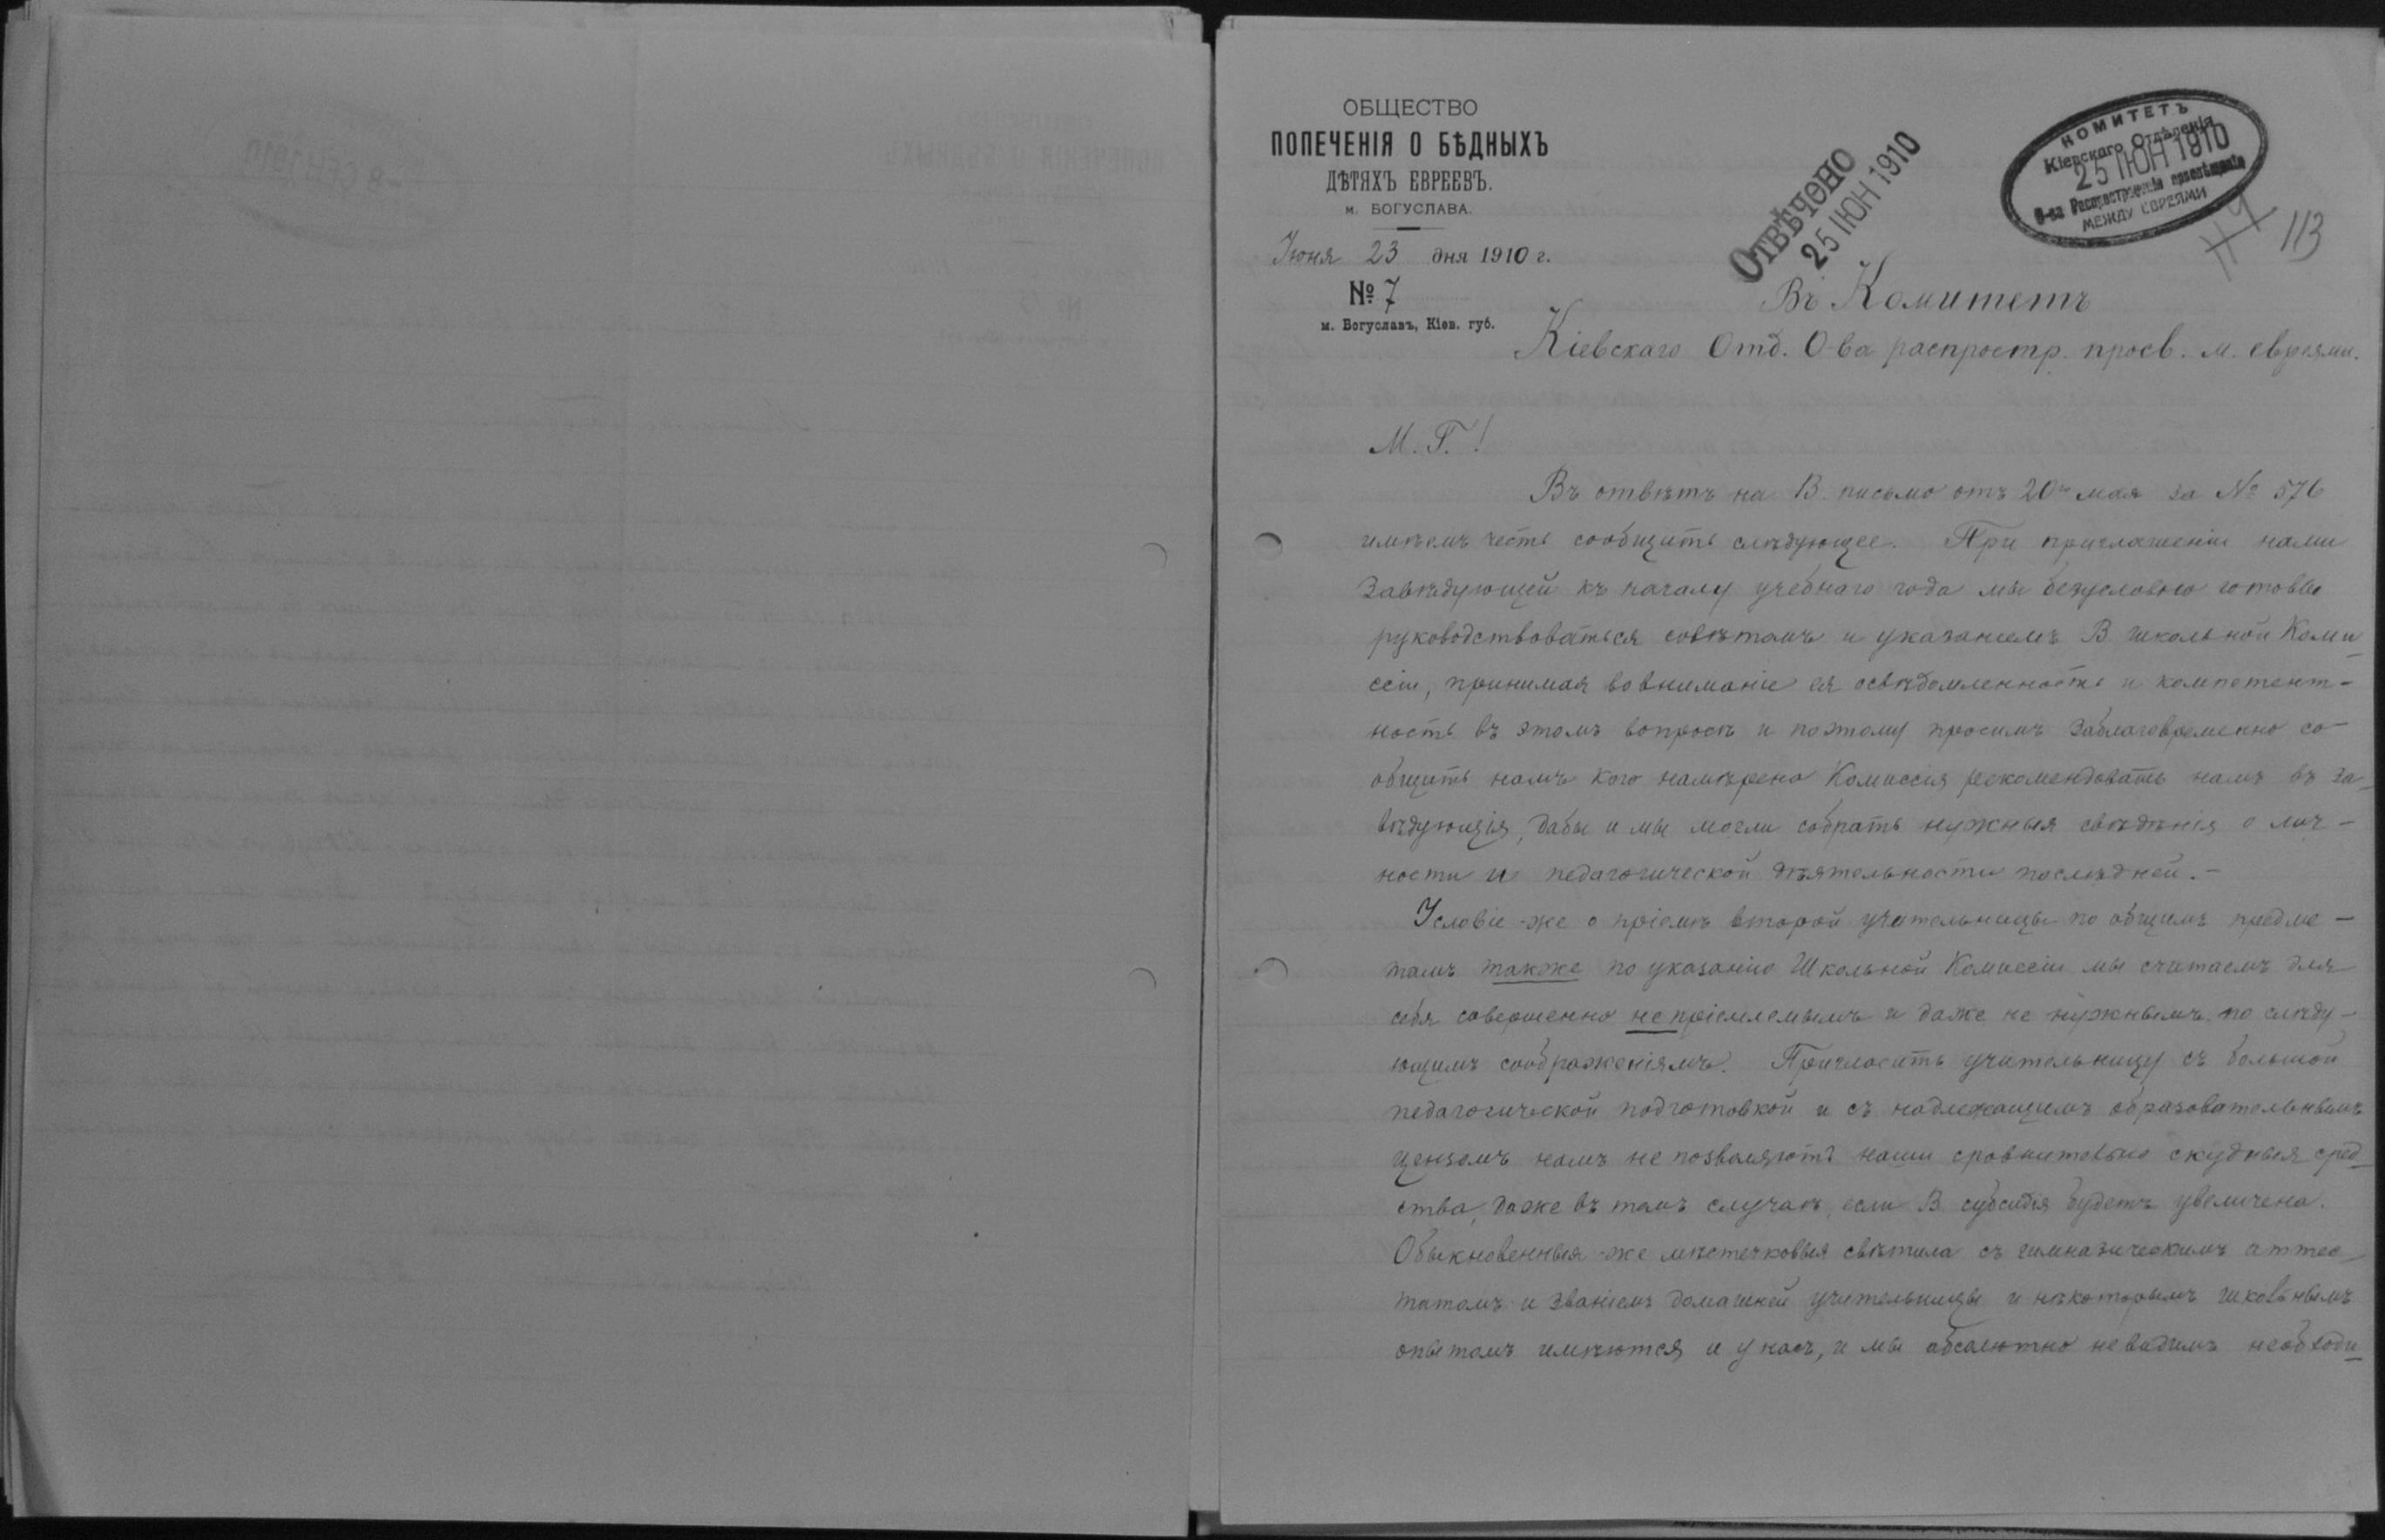 ОБЩЕСТВО
ПОПЕЧЕНІЯ О БѢДНЫХЪ
ДѢТЯХЪ ЕВРЕЕВЪ.
м. БОГУСЛАВА.
Іюня 23 дня 1910 г.
№ 7
м. Богуславъ, Кіев. губ.
ОТВѢЧЕНО
25 ІЮН 1910
КОМИТЕТЪ
Кіевскаго Отдѣленія
25 ІЮН 1910
О-ва Распространенія просвѣщенія
МЕЖДУ ЕВРЕЯМИ
113
Въ Комитетъ
Кіевскаго Отд. О-ва распростр. просв. м. евреями.
М. Г.!
Въ отвѣтъ на В. письмо отъ 20го мая за № 576
имѣемъ честь сообщить слѣдующее. При приглашеніи нами
завѣдующей къ началу учебнаго года мы безусловно готовы
руководствоваться совѣтомъ и указаніемъ В. школьной Коми-
ссіи, принимая во вниманіе ея освѣдомленность и компетент-
ность въ этомъ вопросѣ и поэтому просимъ заблаговременно со-
общить намъ кого намѣрена Комиссія рекомендовать намъ въ за-
вѣдующія, дабы и мы могли собрать нужныя свѣдѣнія о лич-
ности и педагогической дѣятельности послѣдней.-
Условіе-же о пріемѣ второй учительницы по общимъ предме-
тамъ также по указанію Школьной Комиссіи мы считаемъ для
себя совершенно непріемлемымъ и даже не нужнымъ по слѣду-
ющимъ соображеніямъ. Пригласить учительницу съ большой
педагогической подготовкой и съ надлежащимъ образовательнымъ
цензомъ намъ не позваляютъ наши сравнительно скудныя сред-
ства, даже въ томъ случаѣ, если В. субсидія будетъ увеличена.
Обыкновенныя-же мѣстечковыя свѣтила съ гимназическимъ аттес-
татомъ и званіемъ домашней учительницы и нѣкоторымъ школьнымъ
опытомъ имѣются и у насъ, и мы абсалютно не видимъ необходи-